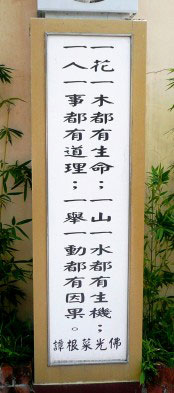 一花一木都有生命；一山一水都有生機；
一人一事都有道理；一舉一動都有因果。
佛光菜根譚